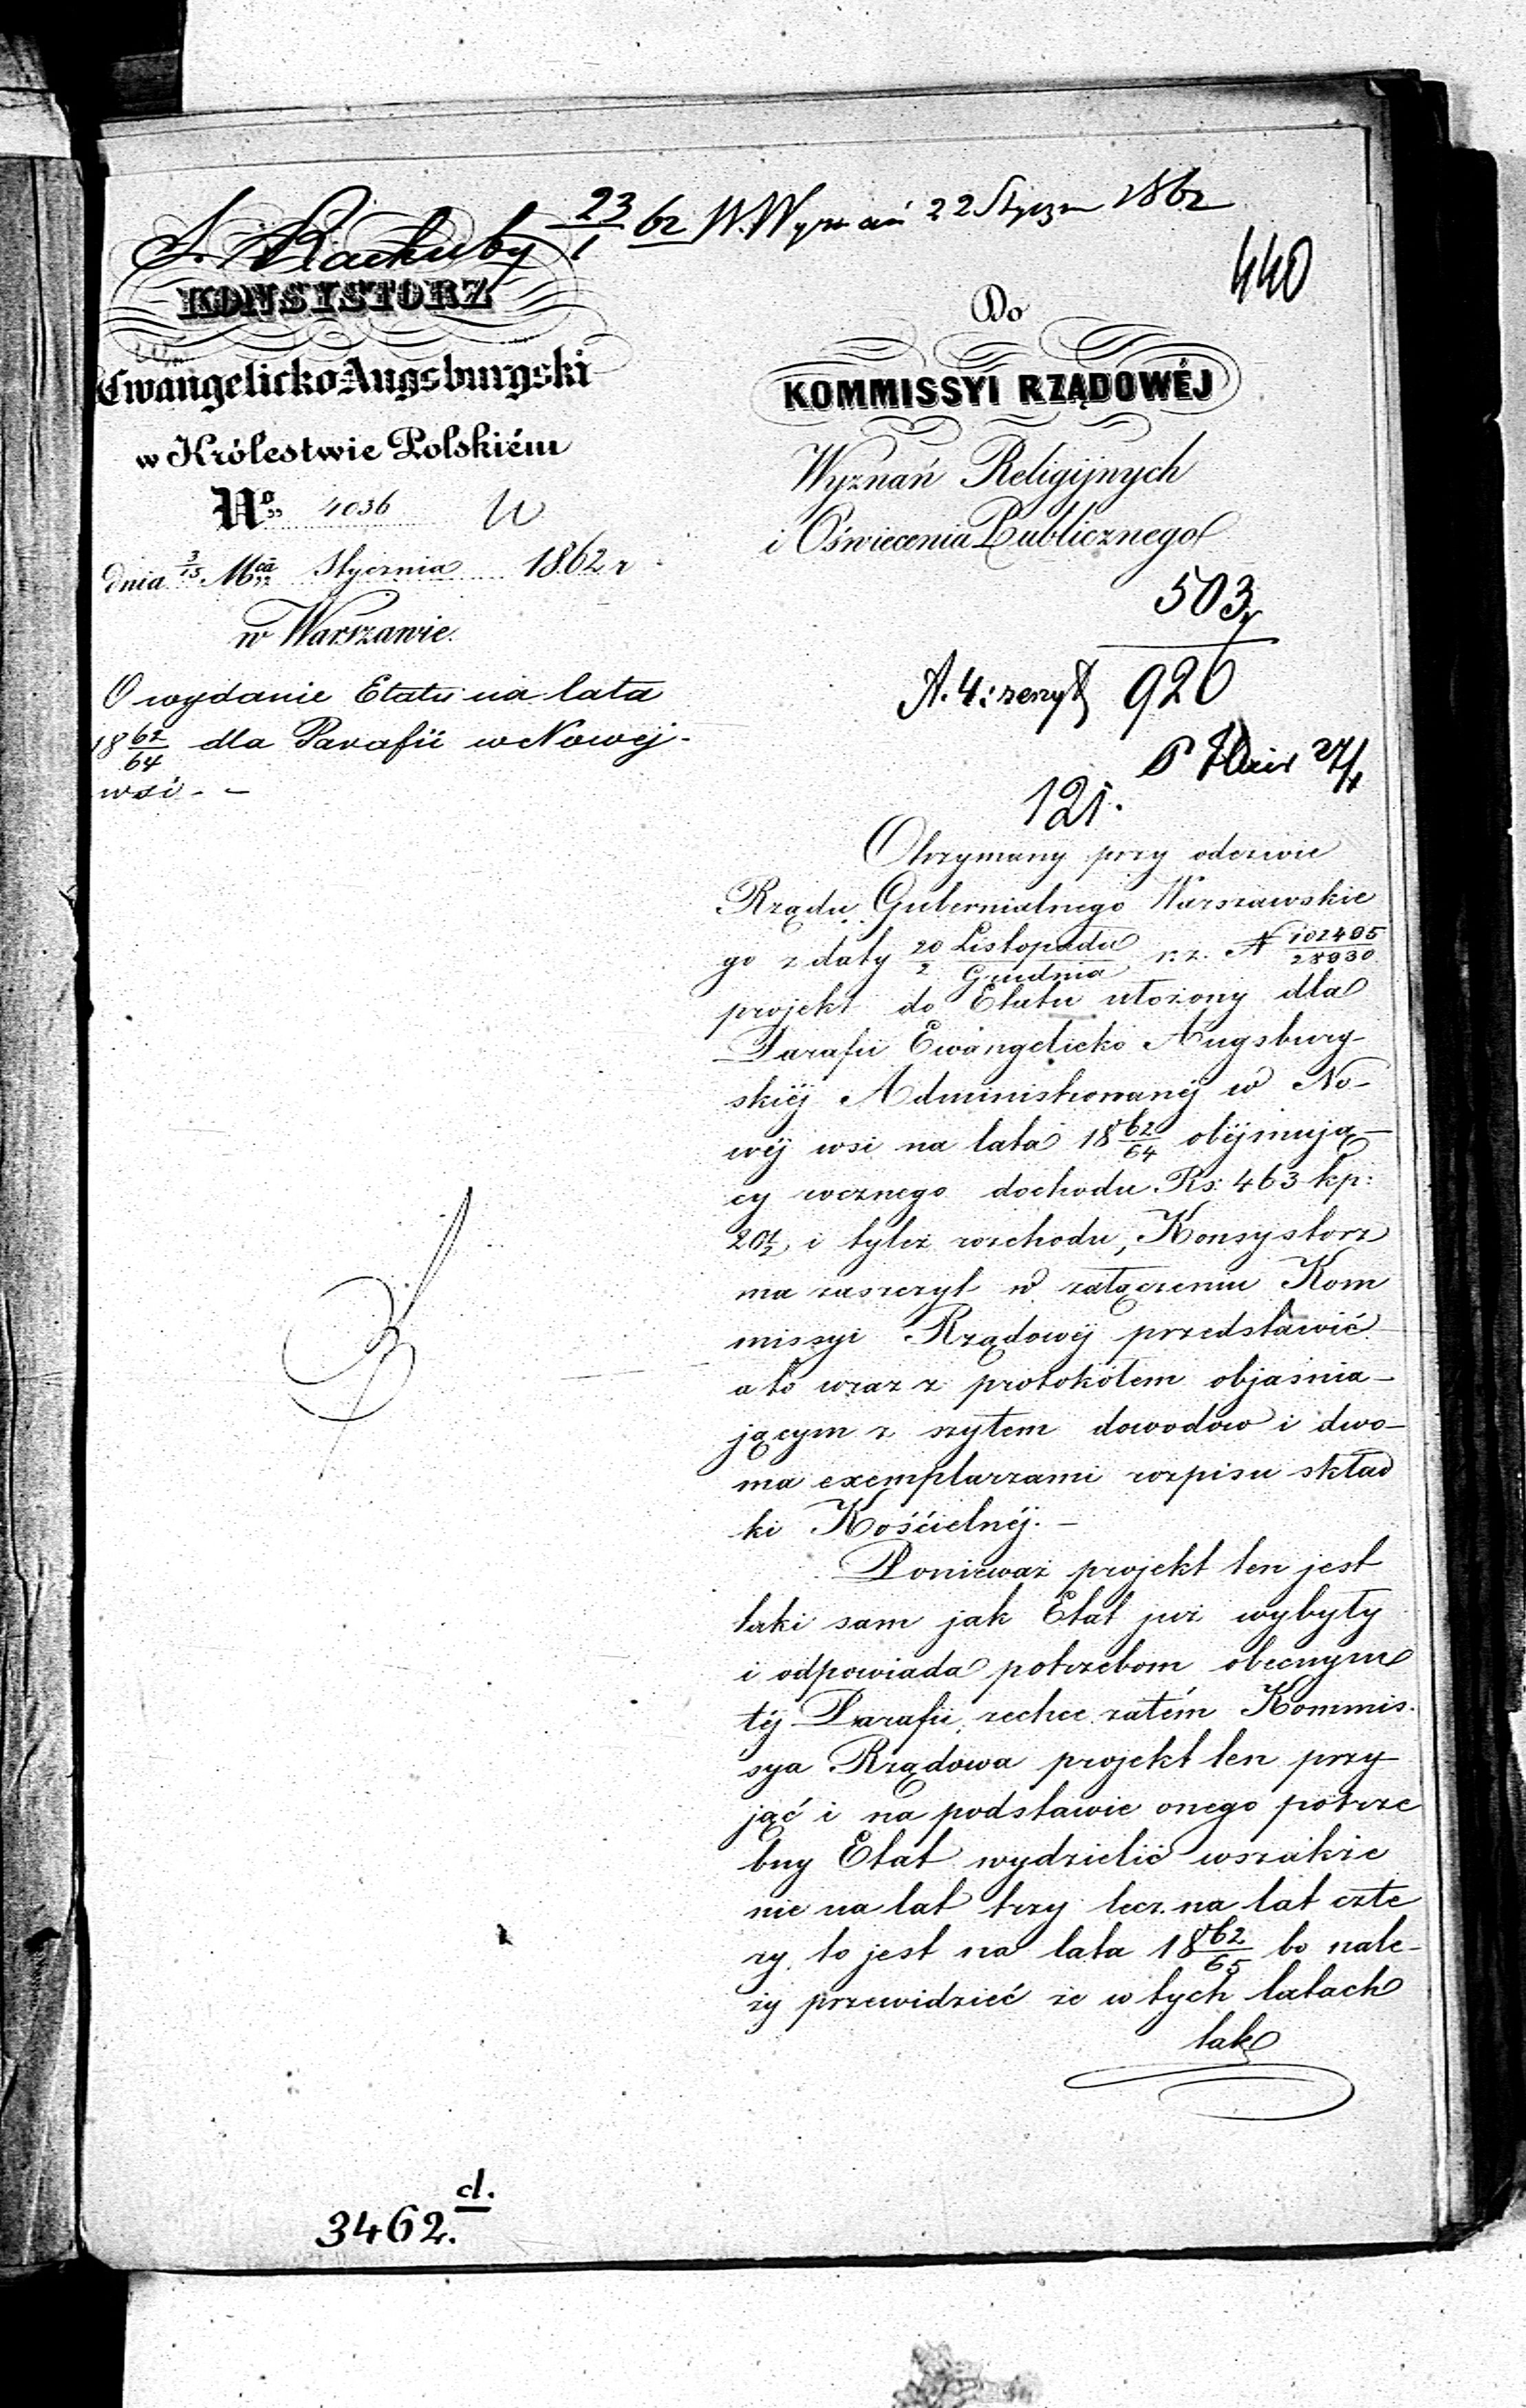 S. Rachuby 23/1 62 W. Wyznań 22 Stycz 1862
440
KONSYSTORZ
Ewangelicko-Augsburgski
w Królestwie Polskiém
No 4036
dnia 3/15 Mca Stycznia 1862 r
w Warszawie.
O wydanie Etatu na lata
18 62/64 dla Parafii w Nowej-
wsi - -
Do
KOMMISSYI RZĄDOWÉJ
Wyznań Religijnych
i Oświecenia Publicznego
503
A. 4: zeszyt 926
27/1
121.
Otrzymany przy odezwie
Rządu Gubernialnego Warszawskie
go z daty 20 Listopada/2 Grudnia r: z. N 102405/28030
projekt do Etatu ułożony dla
Parafii Ewangelicko Augsburg-
skiéj Administrowanéj w No-
wéj wsi na lata 18 62/64 obéjmują-
cy rocznego dochodu Rs: 463 kp:
20 1/2, i tyleż rozchodu, Konsystorz
ma zaszczyt w załączeniu Kom
missyi Rządowéj przedstawić
a to wraz z protokółem objaśnia-
jącym z szytem dowodow i dwo-
ma exemplarzami rozpisu skład
ki Kościelnéj. -
Ponieważ projekt ten jest
taki sam jak Etat już wybyły
i odpowiada potrzebom obecnym
téj Parafii, zechce zatém Kommis-
sya Rządowa projekt ten przy-
jąć i na podstawie onego potrze
bny Etat wydzielić wszakże
nie na lat trzy lecz na lat czte
ry, to jest na lata 18 62/65 bo nale-
ży przewidzieć że w tych latach
tak
3462. d.